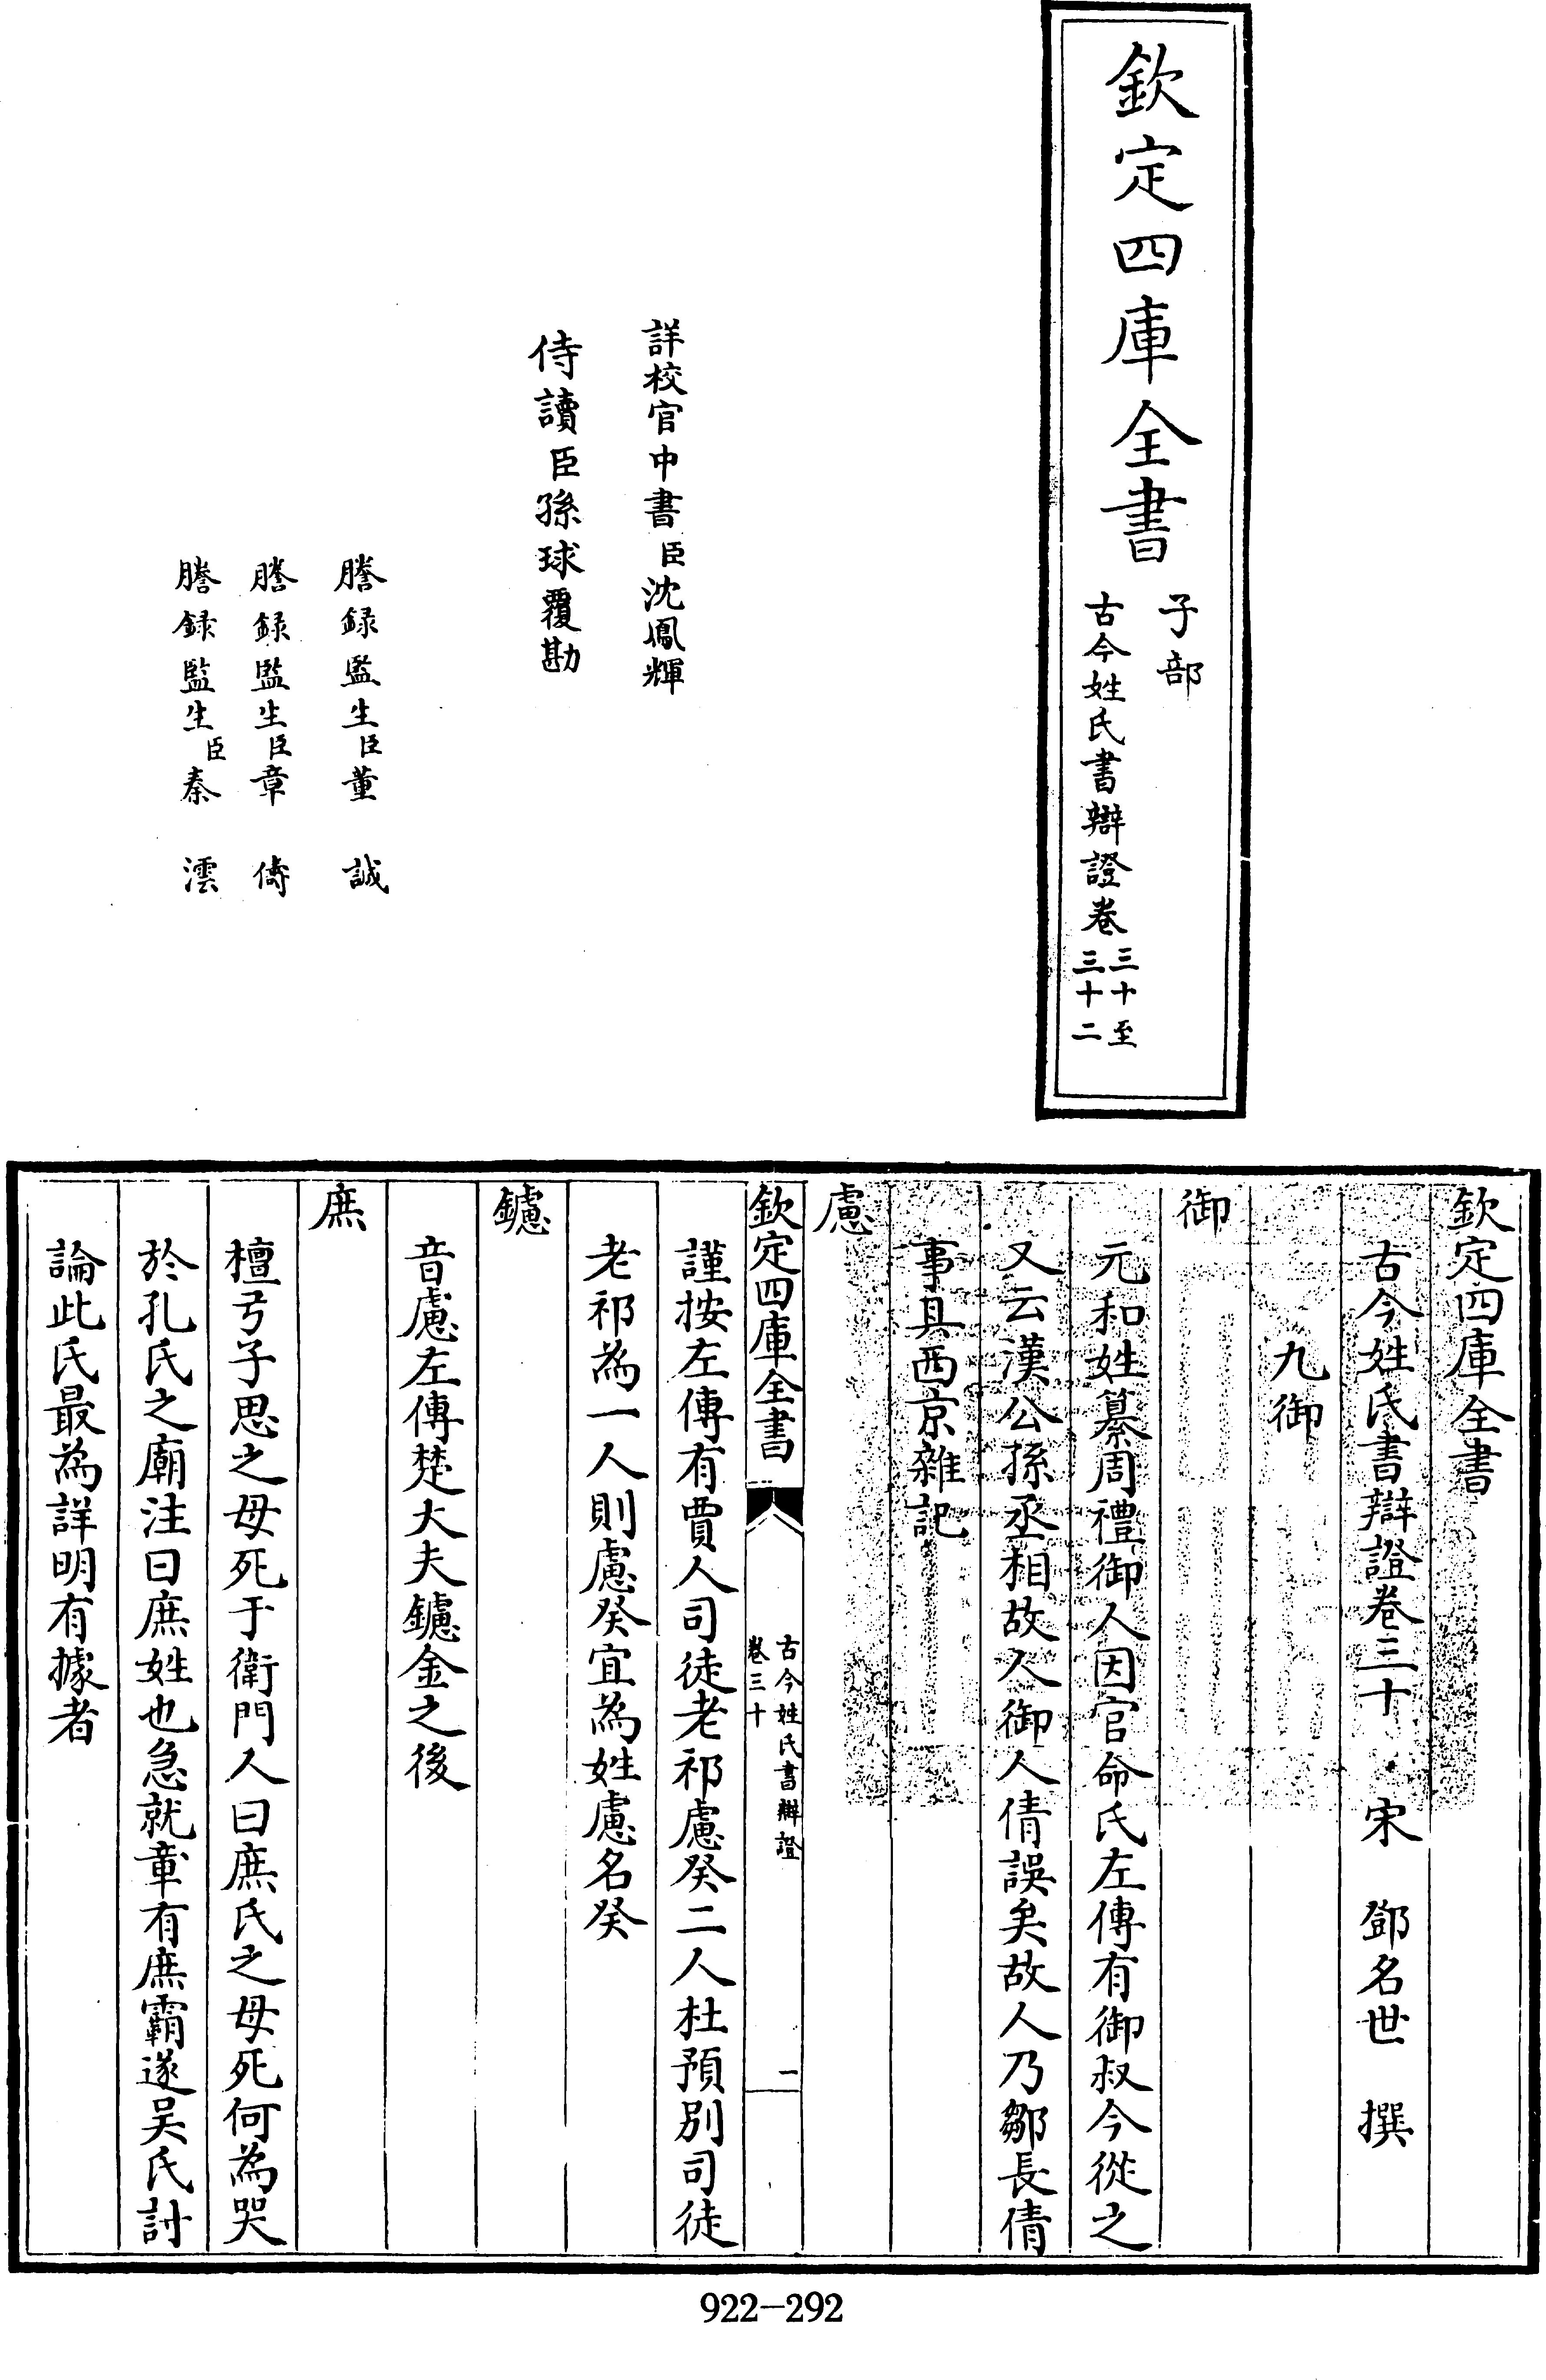 欽定四庫全書
子部
古今姓氏書辯證卷三十至三十二
詳校官中書臣沈鳳輝
侍讀臣孫球覆勘
謄録監生臣董誠
謄録監生臣章儔
謄録監生臣秦澐
欽定四庫全書
古今姓氏書辯證卷三十 宋 鄧名世 撰
九御
御
元和姓纂周禮御人因官命氏左傳有御叔今從之
又云漢公孫丞相故人御人倩誤矣故人乃鄒長倩
事具西京雜記
慮
欽定四庫全書
古今姓氏書辯證
卷三十
一
謹按左傳有賈人司徒老祁慮癸二人杜預別司徒
老祁為一人則慮癸宜為姓慮名癸
鑢
音慮左傳楚大夫鑢金之後
庶
檀弓子思之母死于衛門人曰庶氏之母死何為哭
於孔氏之廟注曰庶姓也急就章有庶霸遂吴氏討
論此氏最為詳明有據者
922-292